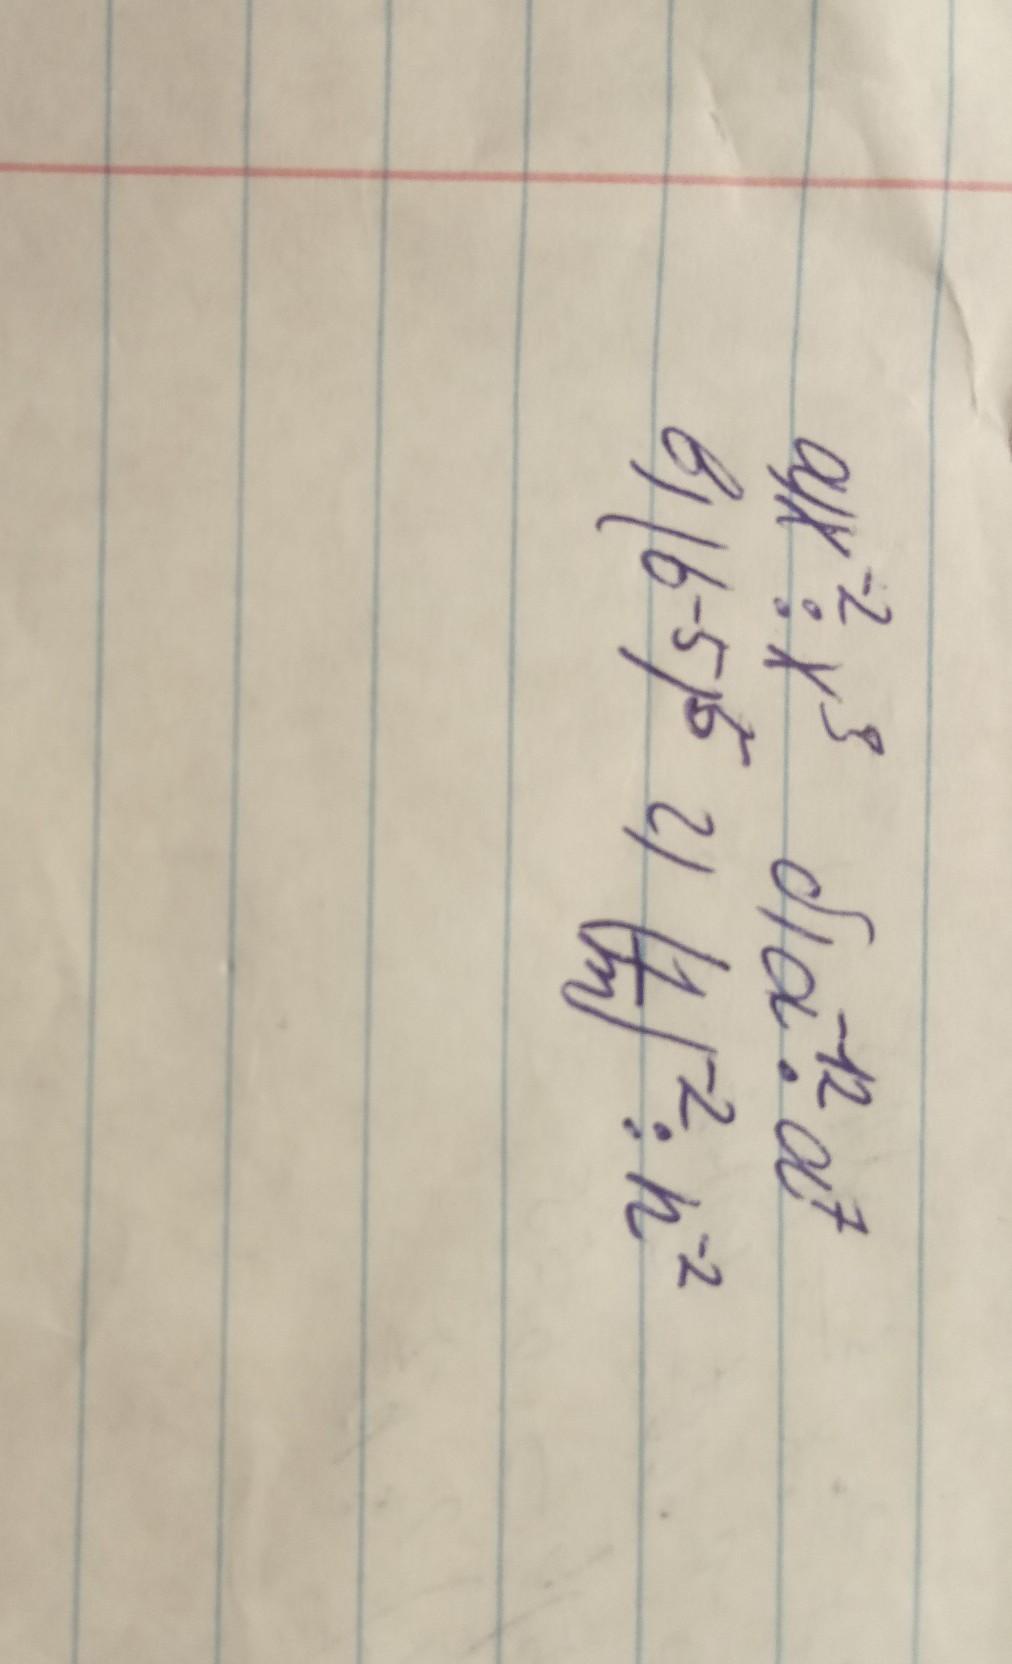 а) x⁻² : x⁹ б) a⁻¹² · a⁷
в) (b⁻⁵)⁵ г) (1/n)⁻² : n⁻²